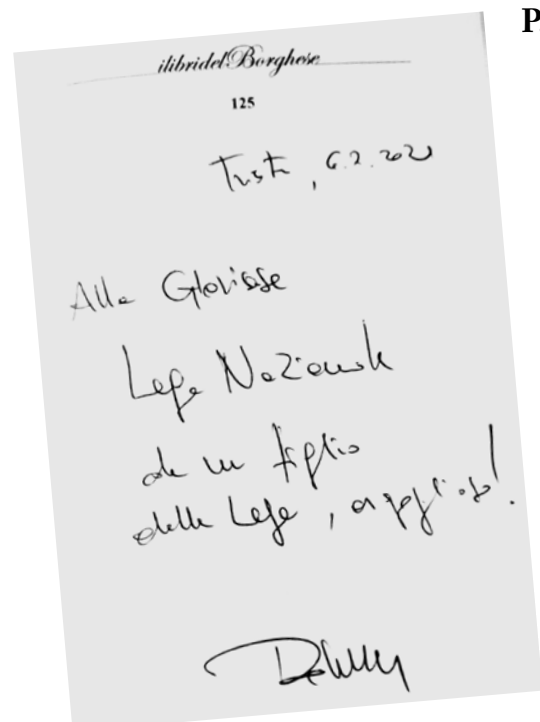 P
ilibridel Borghese
125
Trieste, 6.2.2021
Alla Gloriosa
Lega Nazionale
da un figlio
della Lega, orgoglioso!